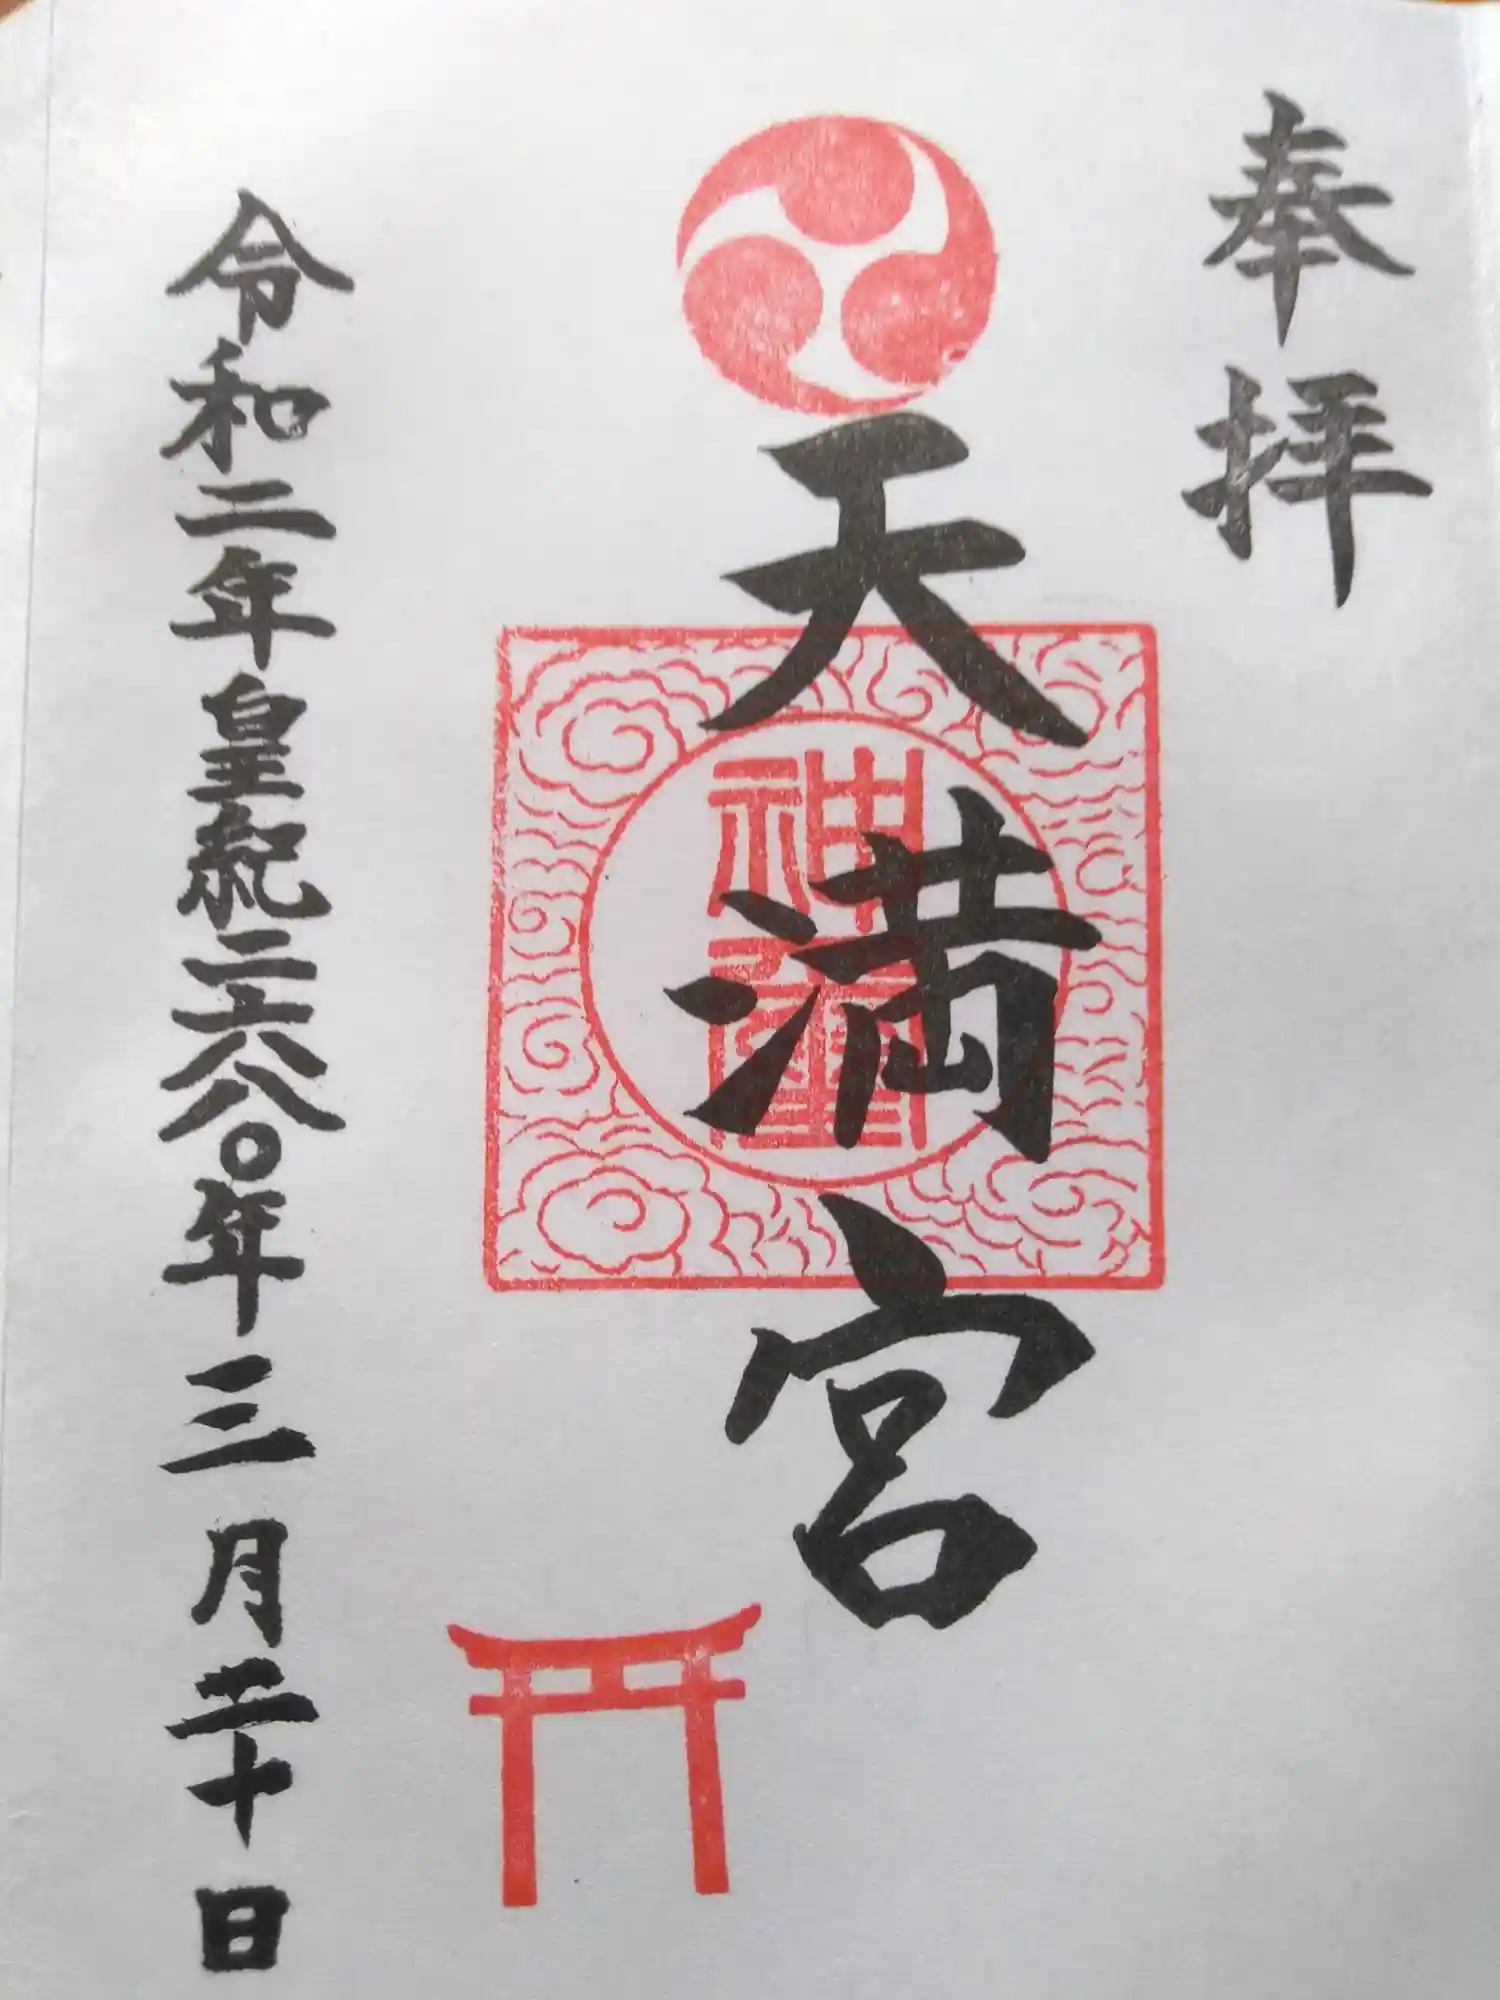 奉拝
天満宮
神璽
令和二年皇紀二六八〇年三月二十日